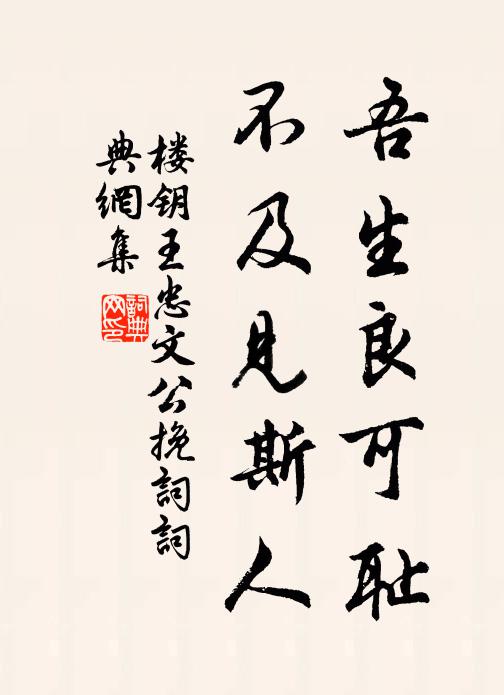 吾生良可耻
不及見斯人
楼钥王忠文公挽詞詞
典網集
詞典网印